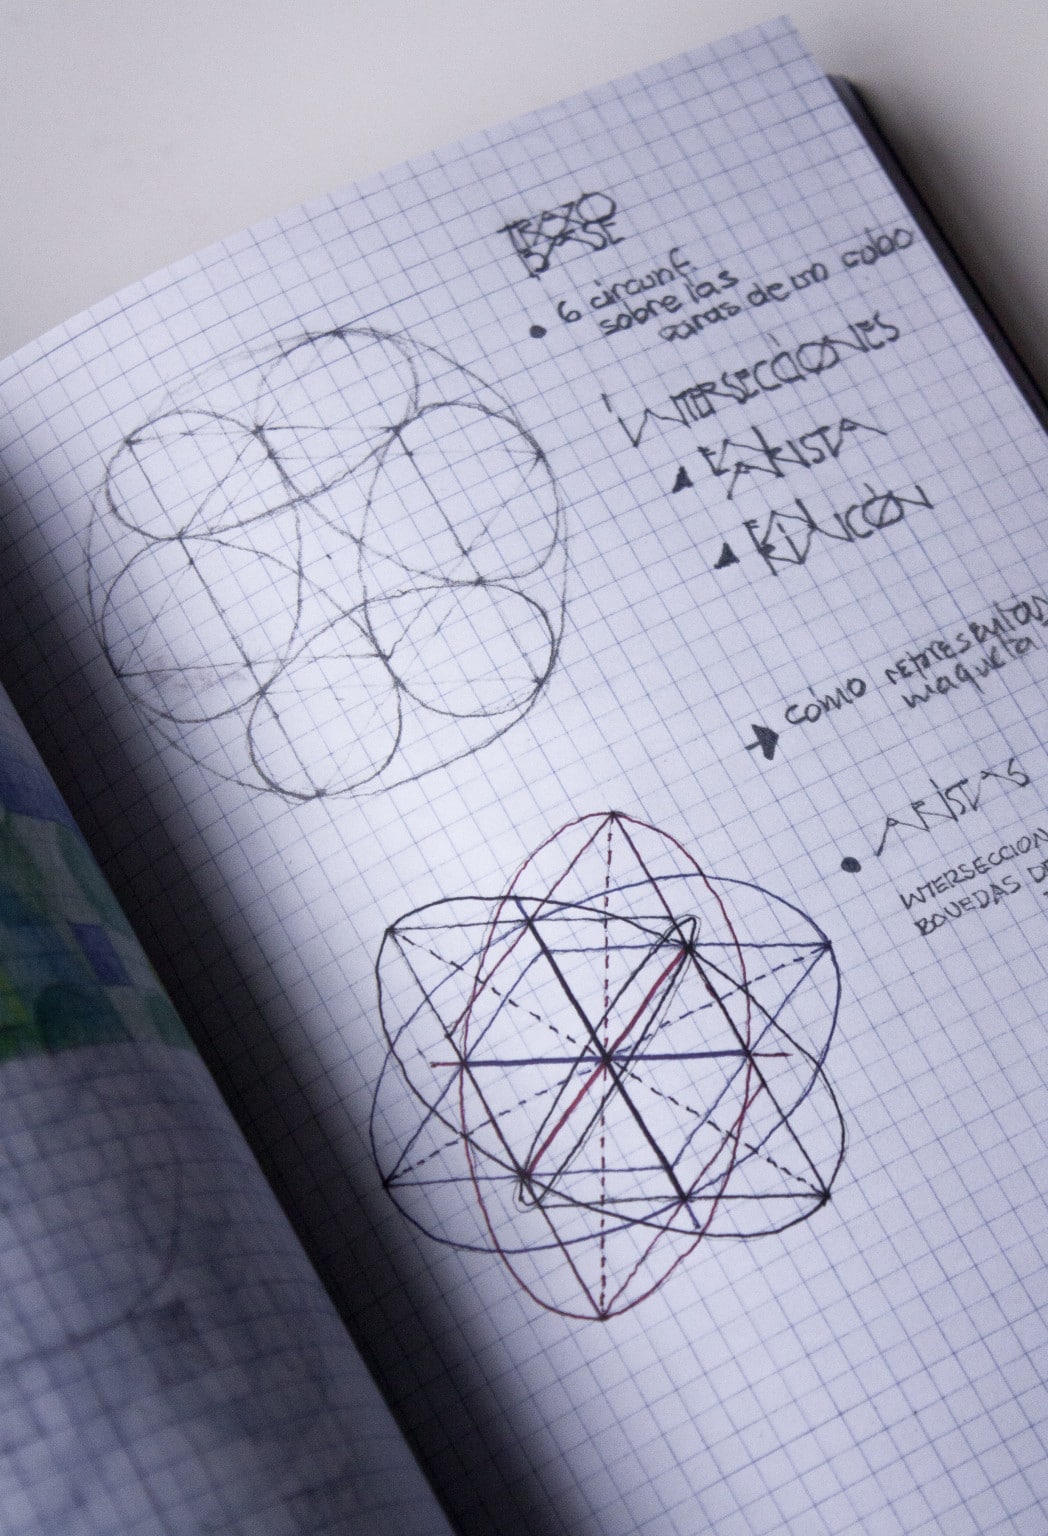 TRAZO
BASE
• 6 circunf.
sobre las
caras de un cubo
INTERSECCIONES
▲ EN ARISTA
▲ EN RINCÓN
→ cómo representarlas
maqueta
• ARISTAS
INTERSECCION
BOVEDAS DE